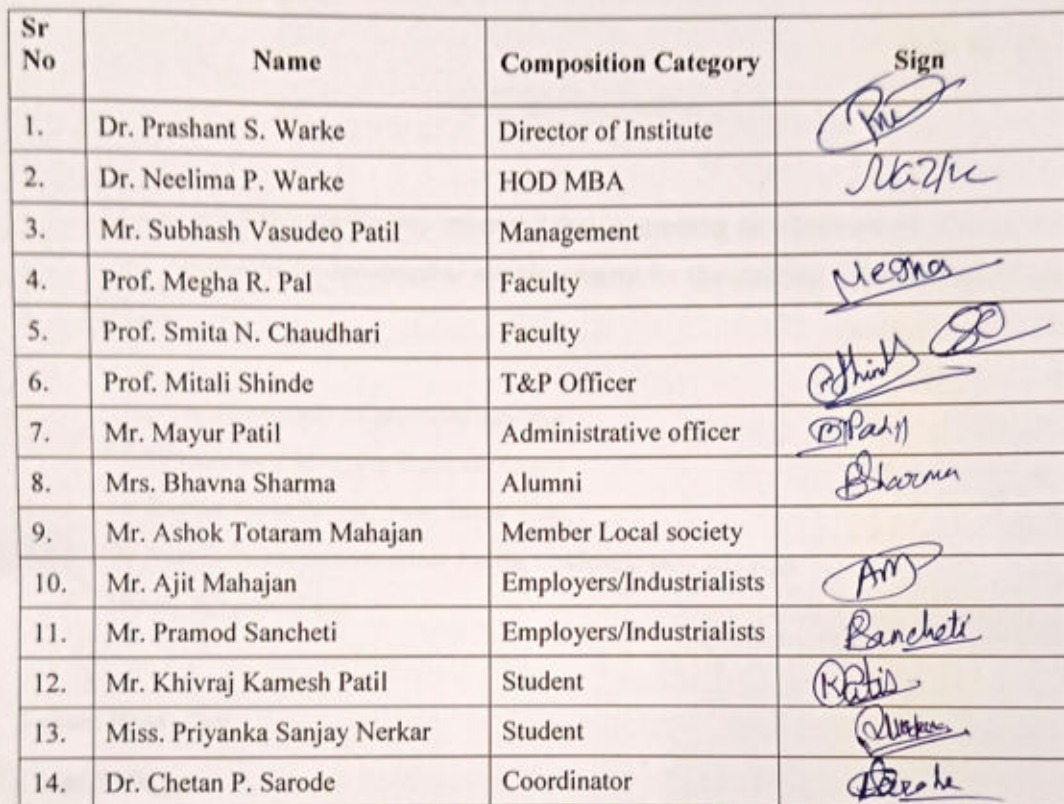 Sr No Name Composition Category Sign
1. Dr. Prashant S. Warke Director of Institute
2. Dr. Neelima P. Warke HOD MBA
3. Mr. Subhash Vasudeo Patil Management
4. Prof. Megha R. Pal Faculty Megha
5. Prof. Smita N. Chaudhari Faculty SC
6. Prof. Mitali Shinde T&P Officer
7. Mr. Mayur Patil Administrative officer
8. Mrs. Bhavna Sharma Alumni Bharma
9. Mr. Ashok Totaram Mahajan Member Local society
10. Mr. Ajit Mahajan Employers/Industrialists AM
11. Mr. Pramod Sancheti Employers/Industrialists Sancheti
12. Mr. Khivraj Kamesh Patil Student
13. Miss. Priyanka Sanjay Nerkar Student
14. Dr. Chetan P. Sarode Coordinator